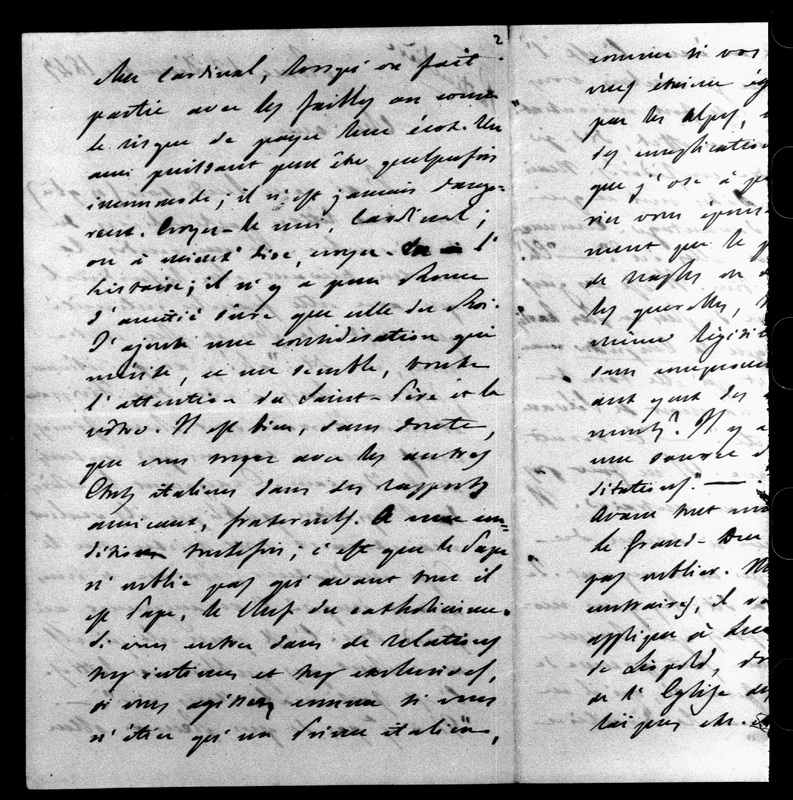 2
cher Cardinal, lorsqu'on fait
partie avec les faibles on court
le risque de payer leur écot. Un
ami puissant peut être quelquefois
incommode; il n'est jamais dange-
reux. Croyez-le moi, Cardinal;
on a dire, croyez-en l'
histoire; il n'y a pour Rome
d'amitié sûre que celle du Roi.
J'ajoute une considération qui
mérite, ce me semble, toute
l'attention du Saint-Père et la
vôtre. Il est bien, sans doute,
que vous soyez avec les autres
Chefs italiens dans des rapports
amicaux, fraternels. A une con-
dition toutefois; c'est que le Pape
n'oublie pas qu'avant tout il
est Pape, le Chef du catholicisme.
Si vous entrez dans de relations
trop intimes et trop exclusives,
si vous agissez comme si vous
n'étiez qu'un Prince italien,
comme si vos
vous étaient
par les Alpes,
des complication
que j'ose à
rien vous
ment que le
de Naples ou
les querelles,
même
sans
ont des
ments? Il y a
une source d
ditations." —
Avant tout
le Grand-Duc
pas oublier.
contraires, il
applique à
de Léopold,
de l'Eglise des
laïques etc.